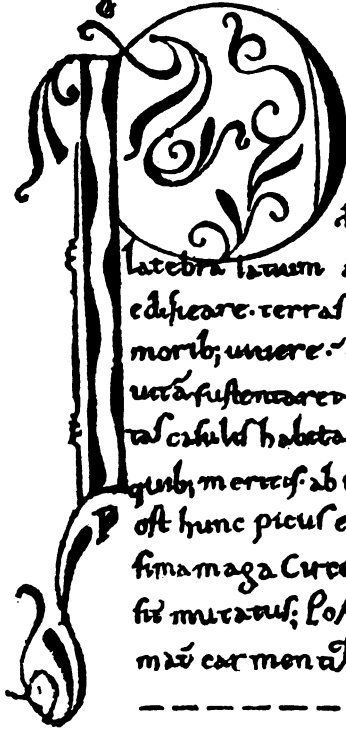 latebra latium
edificare. terras
morib; uiuere.
uitā sustentare
tas casulis habita
quib; meritis. ab
P
ost hunc picus
sima maga Circe
mutatus;
carmenti